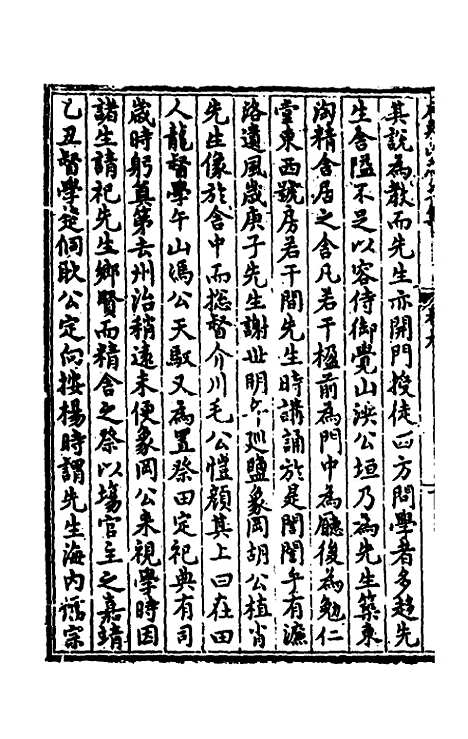 其說為教而先生亦開門授徒四方問學者多趨先
生舍隘不足以容侍御覺山洪公垣乃為先生築東
淘精舍居之舍凡若干楹前為門中為廳後為勉仁
堂東西號房若干間先生時講誦於是誾誾乎有濂
洛遺風歲庚子先生謝世明年巡鹽象岡胡公植肖
先生像於舍中而捴督介川毛公愷顏其上曰在田
人龍督學午山馮公天馭又為置祭田定祀典有司
歲時躬奠第去州治稍遠未便象岡公來視學時因
諸生請祀先生鄉賢而精舍之祭以場官主之嘉靖
乙丑督學楚侗耿公定向按楊時謂先生海內儒宗